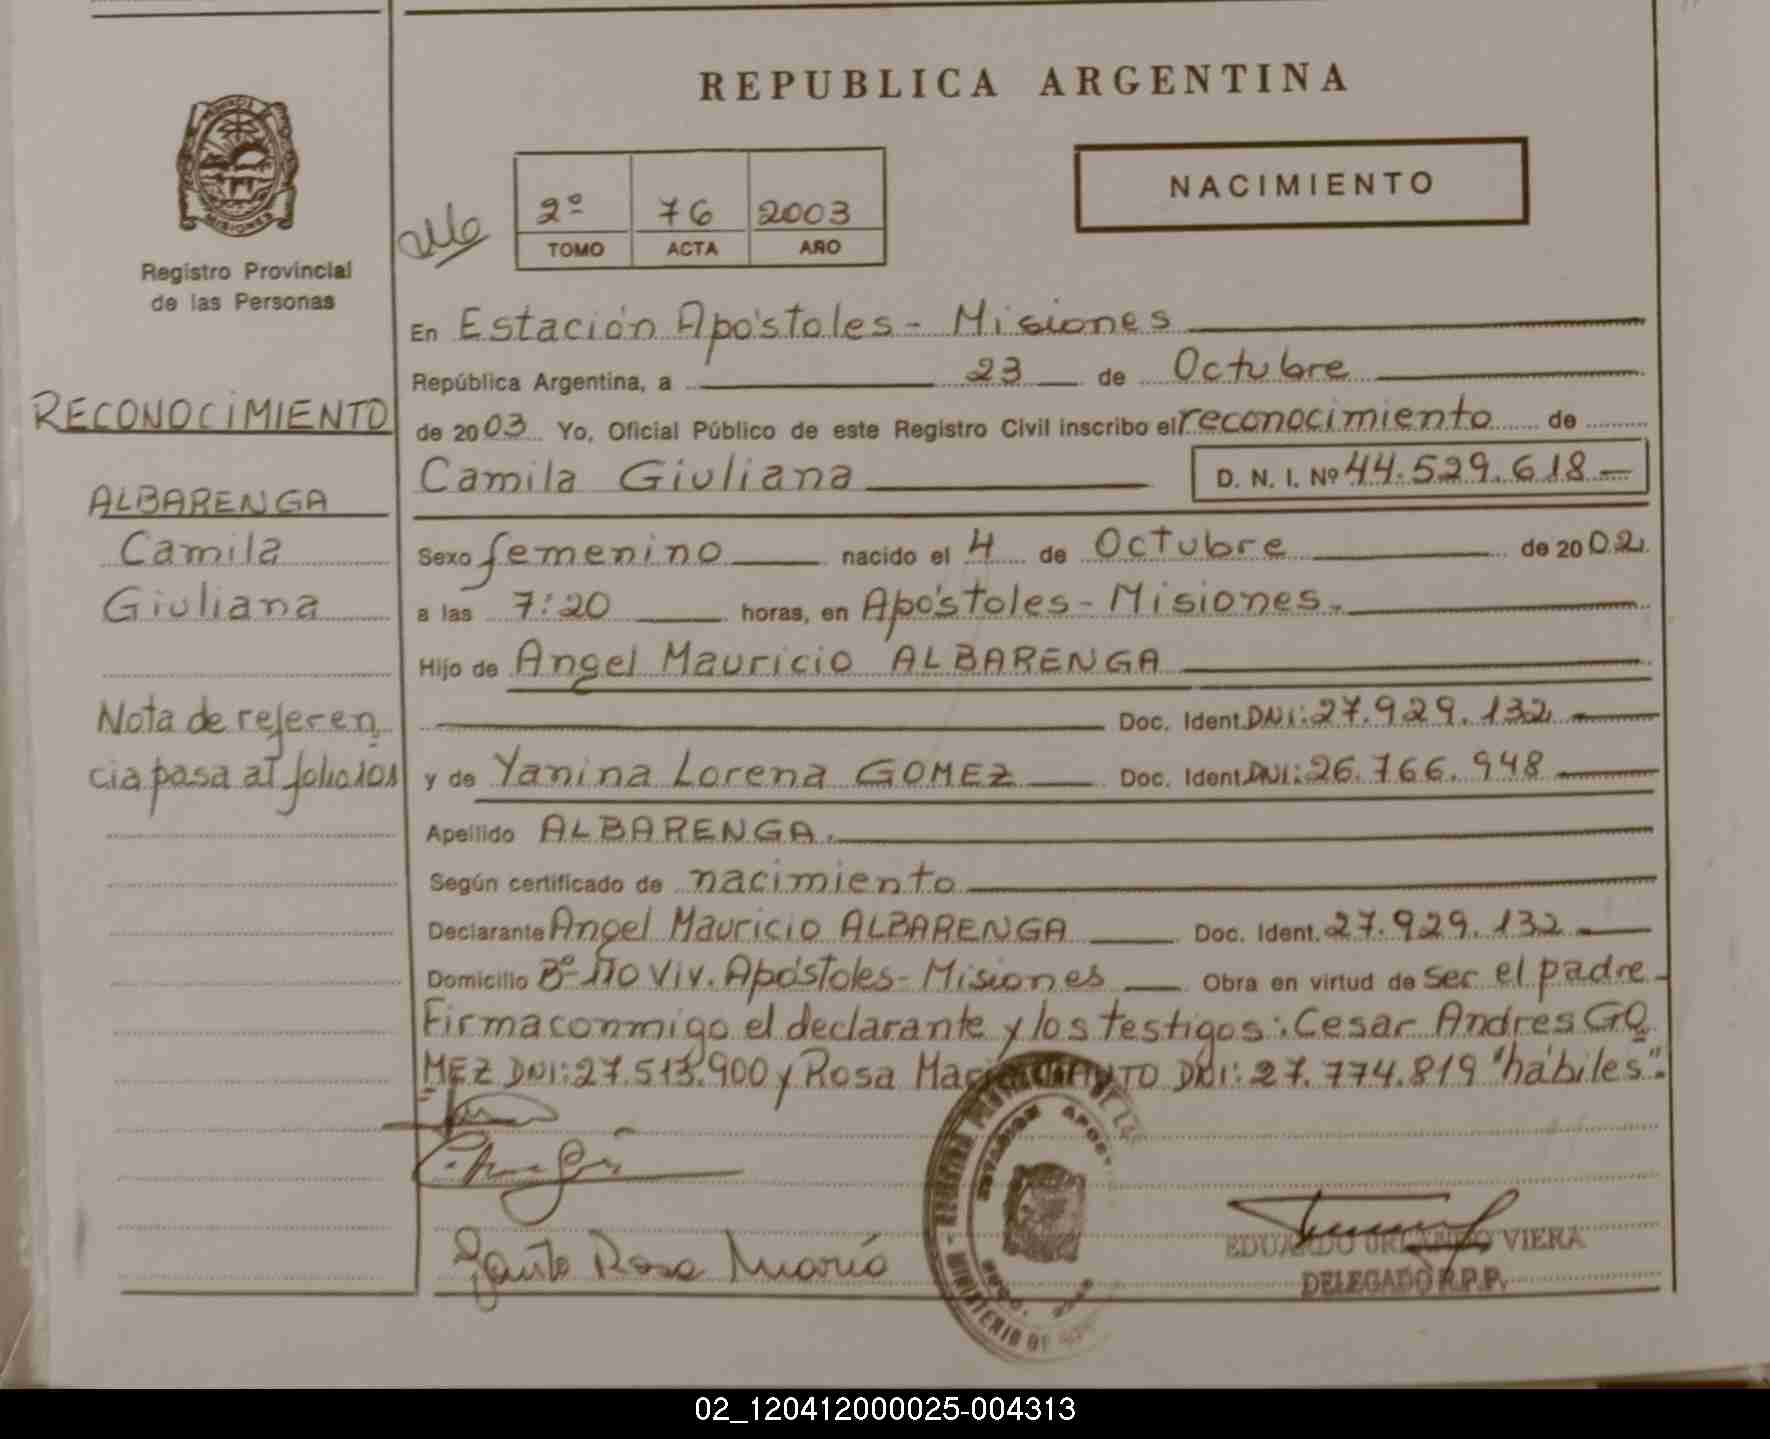 REPUBLICA ARGENTINA
NACIMIENTO
2º 76 2003
TOMO ACTA AÑO
MISIONES
Registro Provincial
de las Personas
RECONOCIMIENTO
ALBARENGA
Camila
Giuliana
Nota de referen
cia pasa al folio 108
En Estación Apóstoles - Misiones
República Argentina, a 23 de Octubre
de 2003 Yo, Oficial Público de este Registro Civil inscribo el reconocimiento de
Camila Giuliana D. N. I. Nº 44.529.618
Sexo femenino nacido el 4 de Octubre de 2002
a las 7:20 horas, en Apóstoles - Misiones.
Hijo de Angel Mauricio ALBARENGA
Doc. Ident. DNI: 27.929.132
y de Yanina Lorena GOMEZ Doc. Ident. DNI: 26.766.948
Apellido ALBARENGA.
Según certificado de nacimiento
Declarante Angel Mauricio ALBARENGA Doc. Ident. 27.929.132
Domicilio Bº 110 Viv. Apóstoles - Misiones Obra en virtud de ser el padre
Firma conmigo el declarante y los testigos: Cesar Andres GO
MEZ DNI: 27.513.900 y Rosa DNI: 27.774.819 "hábiles".
Rosa María
EDUARDO ORLANDO VIERA
DELEGADO R.P.P.
ESTACION APOS.
MINISTERIO DE
02_120412000025-004313